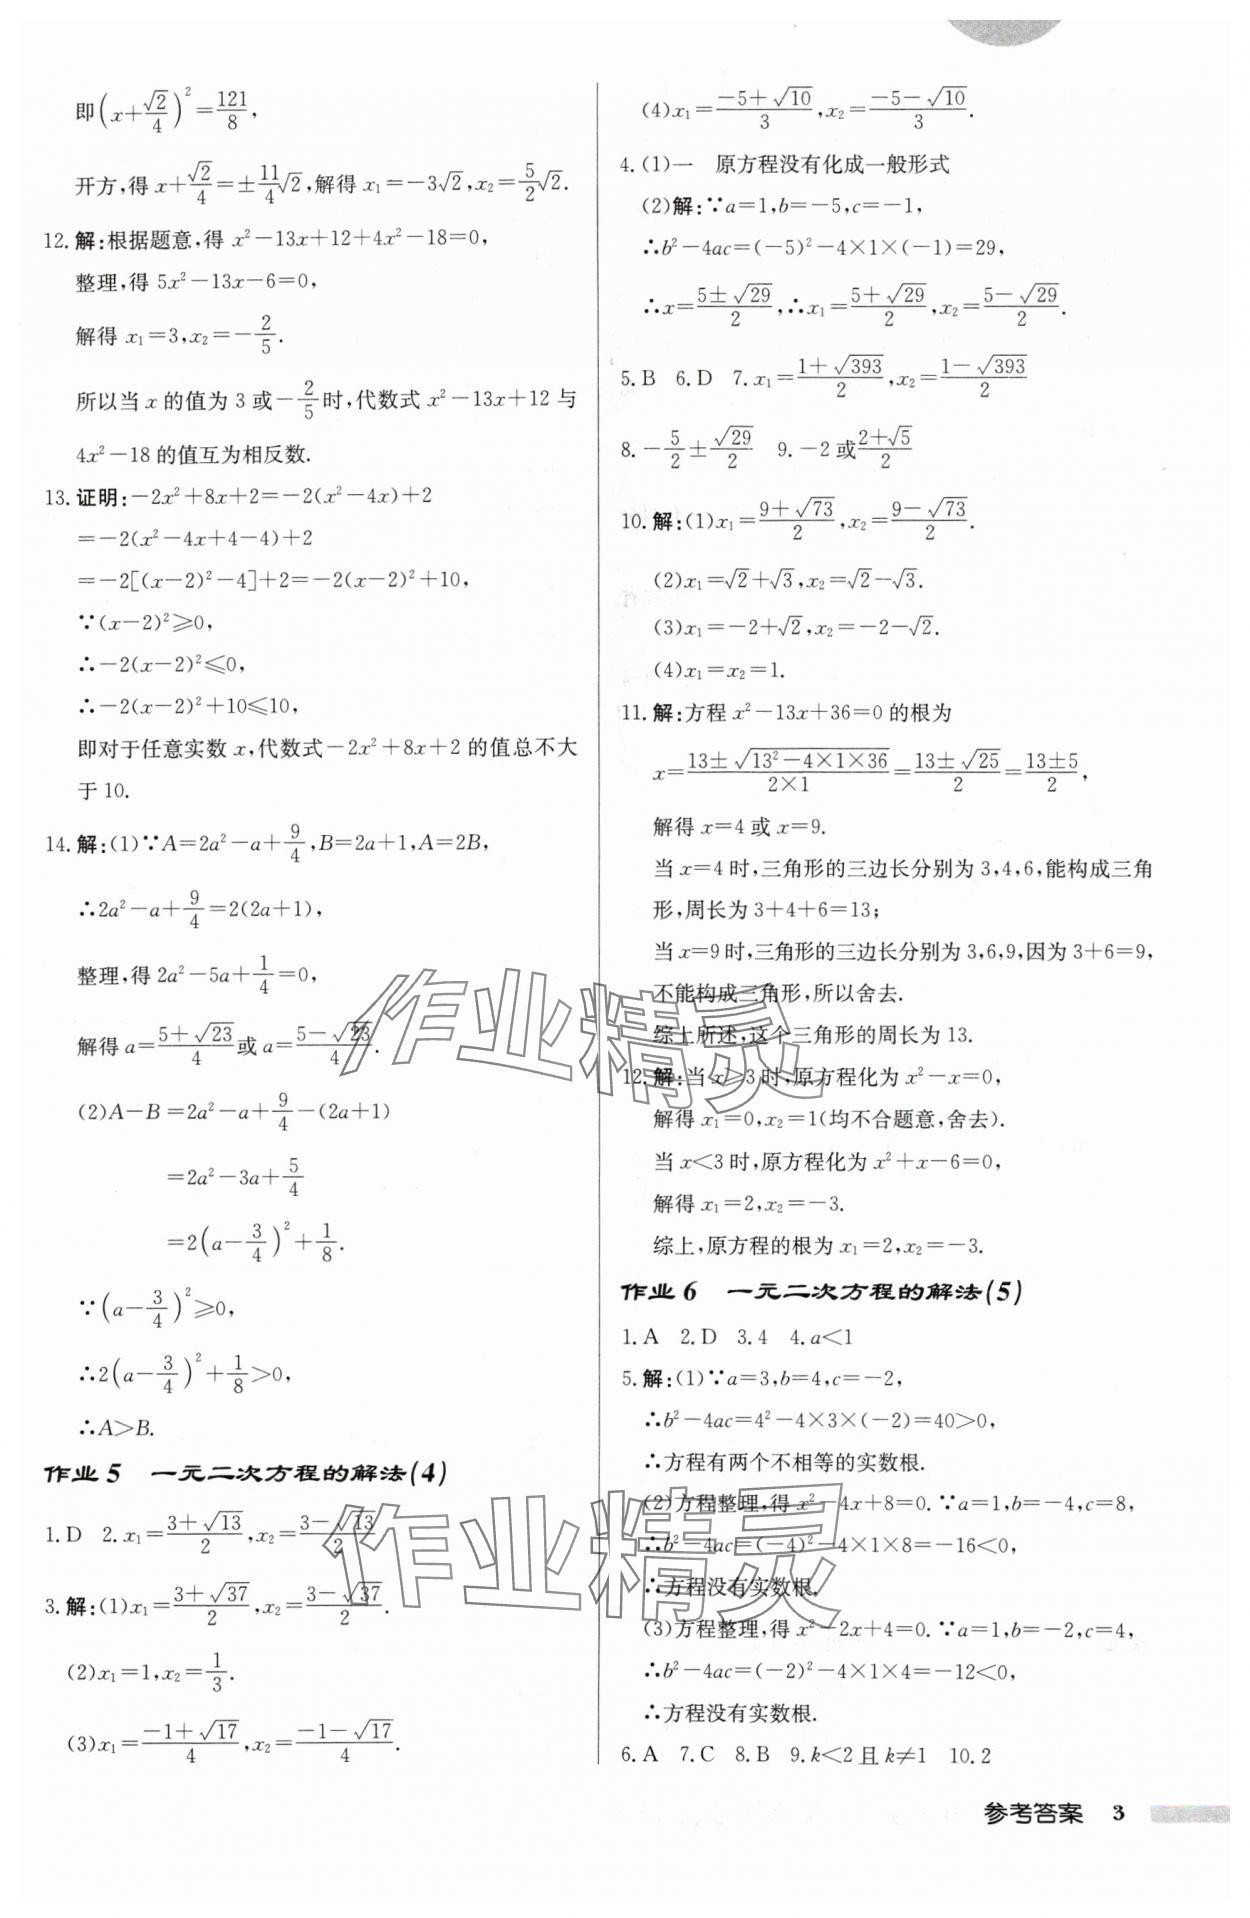 即(x+√2/4)²=121/8,
开方,得 x+√2/4=±11/4√2,解得 x₁=-3√2,x₂=5/2√2.
12.解:根据题意,得 x²-13x+12+4x²-18=0,
整理,得 5x²-13x-6=0,
解得 x₁=3,x₂=-2/5.
所以当 x 的值为 3 或-2/5时,代数式 x²-13x+12 与
4x²-18 的值互为相反数.
13.证明:-2x²+8x+2=-2(x²-4x)+2
=-2(x²-4x+4-4)+2
=-2[(x-2)²-4]+2=-2(x-2)²+10,
∵(x-2)²≥0,
∴-2(x-2)²≤0,
∴-2(x-2)²+10≤10,
即对于任意实数 x,代数式-2x²+8x+2 的值总不大
于 10.
14.解:(1)∵A=2a²-a+9/4,B=2a+1,A=2B,
∴2a²-a+9/4=2(2a+1),
整理,得 2a²-5a+1/4=0,
解得 a=(5+√23)/4或 a=(5-√23)/4.
(2)A-B=2a²-a+9/4-(2a+1)
=2a²-3a+5/4
=2(a-3/4)²+1/8.
∵(a-3/4)²≥0,
∴2(a-3/4)²+1/8>0,
∴A>B.
作业 5 一元二次方程的解法(4)
1.D 2.x₁=(3+√13)/2,x₂=(3-√13)/2
3.解:(1)x₁=(3+√37)/2,x₂=(3-√37)/2.
(2)x₁=1,x₂=1/3.
(3)x₁=(-1+√17)/4,x₂=(-1-√17)/4.
(4)x₁=(-5+√10)/3,x₂=(-5-√10)/3.
4.(1)一 原方程没有化成一般形式
(2)解:∵a=1,b=-5,c=-1,
∴b²-4ac=(-5)²-4×1×(-1)=29,
∴x=(5±√29)/2,∴x₁=(5+√29)/2,x₂=(5-√29)/2.
5.B 6.D 7.x₁=(1+√393)/2,x₂=(1-√393)/2
8.-5/2±√29/2 9.-2 或(2+√5)/2
10.解:(1)x₁=(9+√73)/2,x₂=(9-√73)/2.
(2)x₁=√2+√3,x₂=√2-√3.
(3)x₁=-2+√2,x₂=-2-√2.
(4)x₁=x₂=1.
11.解:方程 x²-13x+36=0 的根为
x=(13±√(13²-4×1×36))/(2×1)=(13±√25)/2=(13±5)/2,
解得 x=4 或 x=9.
当 x=4 时,三角形的三边长分别为 3,4,6,能构成三角
形,周长为 3+4+6=13;
当 x=9 时,三角形的三边长分别为 3,6,9,因为 3+6=9,
不能构成三角形,所以舍去.
综上所述,这个三角形的周长为 13.
12.解:当 x≥3 时,原方程化为 x²-x=0,
解得 x₁=0,x₂=1(均不合题意,舍去).
当 x<3 时,原方程化为 x²+x-6=0,
解得 x₁=2,x₂=-3.
综上,原方程的根为 x₁=2,x₂=-3.
作业 6 一元二次方程的解法(5)
1.A 2.D 3.4 4.a<1
5.解:(1)∵a=3,b=4,c=-2,
∴b²-4ac=4²-4×3×(-2)=40>0,
∴方程有两个不相等的实数根.
(2)方程整理,得 x²-4x+8=0.∵a=1,b=-4,c=8,
∴b²-4ac=(-4)²-4×1×8=-16<0,
∴方程没有实数根.
(3)方程整理,得 x²-2x+4=0.∵a=1,b=-2,c=4,
∴b²-4ac=(-2)²-4×1×4=-12<0,
∴方程没有实数根.
6.A 7.C 8.B 9.k<2 且 k≠1 10.2
参考答案 3
作业精灵
作业精灵